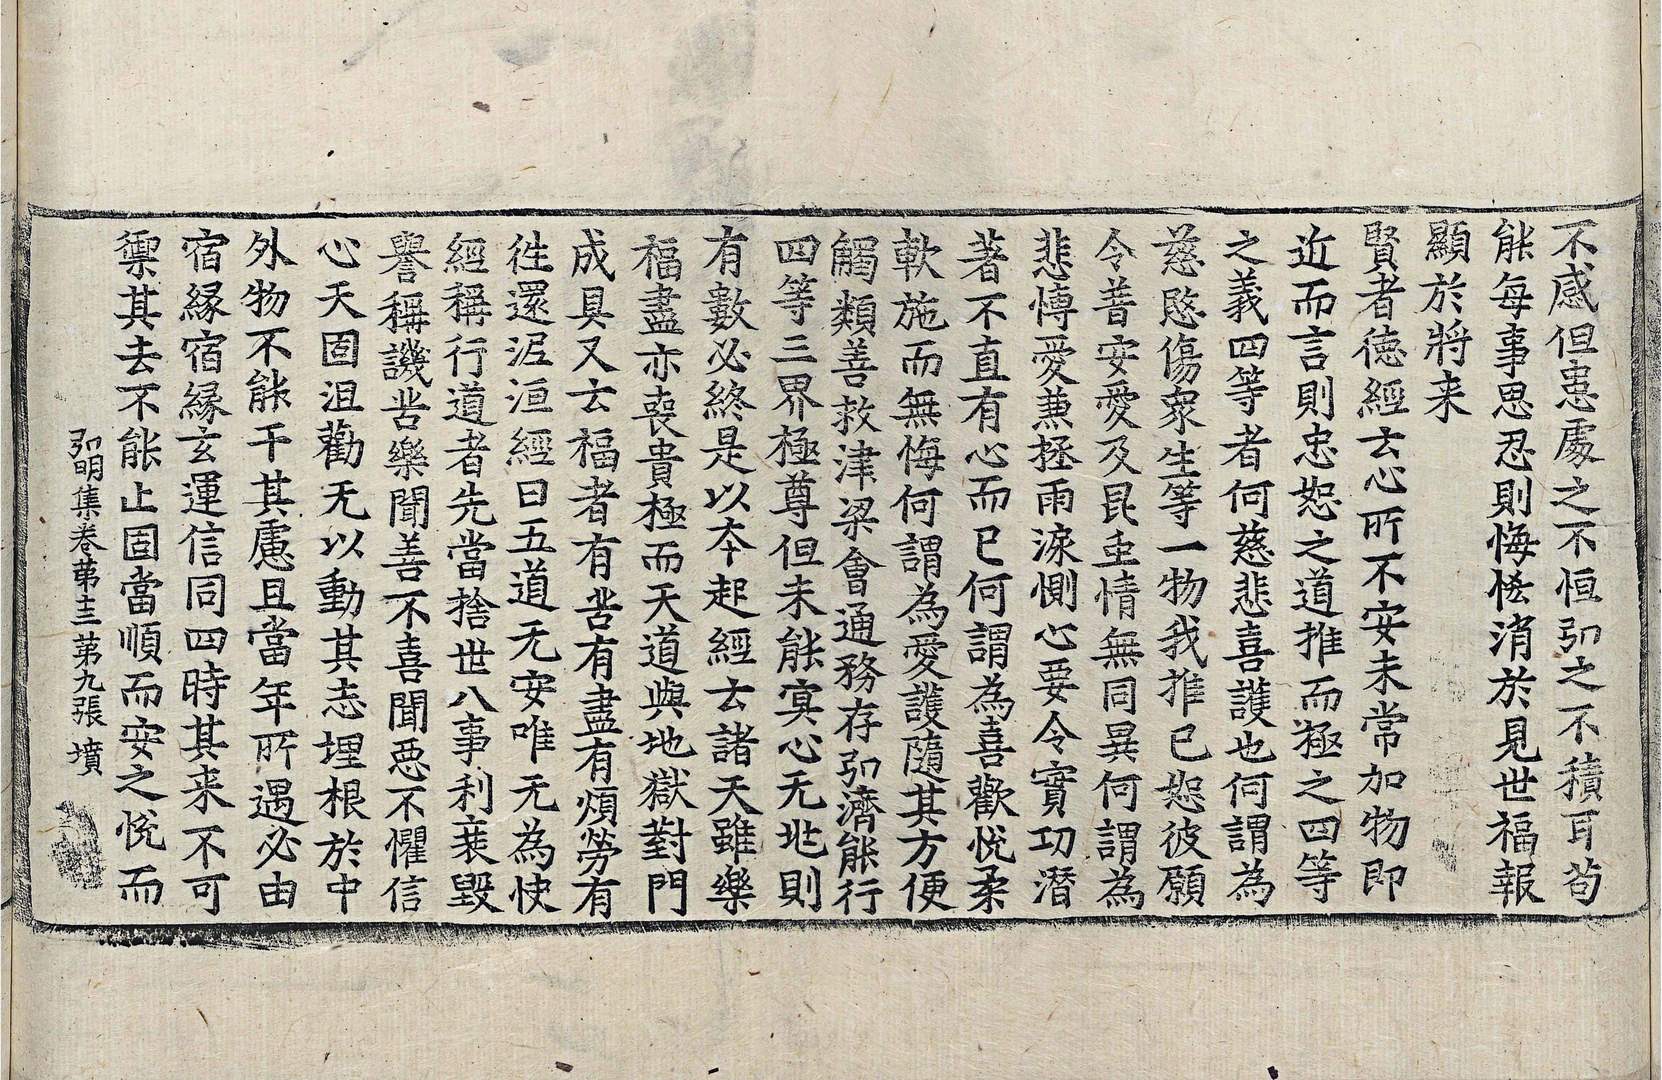 不感但患處之不恒弘之不積耳苟
能每事思忍則悔恡消於見世福報
顯於將来
賢者德經云心所不安未常加物即
近而言則忠恕之道推而極之四等
之義四等者何慈悲喜護也何謂為
慈愍傷衆生等一物我推己恕彼願
令普安愛及昆虫情無同異何謂為
悲愽愛兼拯雨淚惻心要令實功潛
著不直有心而已何謂為喜歡悅柔
軟施而無悔何謂為愛護隨其方便
觸類善救津梁會通務存弘濟能行
四等三界極尊但未能冥心无兆則
有數必終是以夲起經云諸天雖樂
福盡亦喪貴極而天道與地獄對門
成具又云福者有苦有盡有煩勞有
徃還泥洹經曰五道无安唯无為快
經稱行道者先當捨世八事利衰毀
譽稱譏苦樂聞善不喜聞惡不懼信
心天固沮勸无以動其志埋根於中
外物不能干其慮且當年所遇必由
宿縁宿縁玄運信同四時其来不可
禦其去不能止固當順而安之悅而
弘明集卷苐十三 苐九張 墳